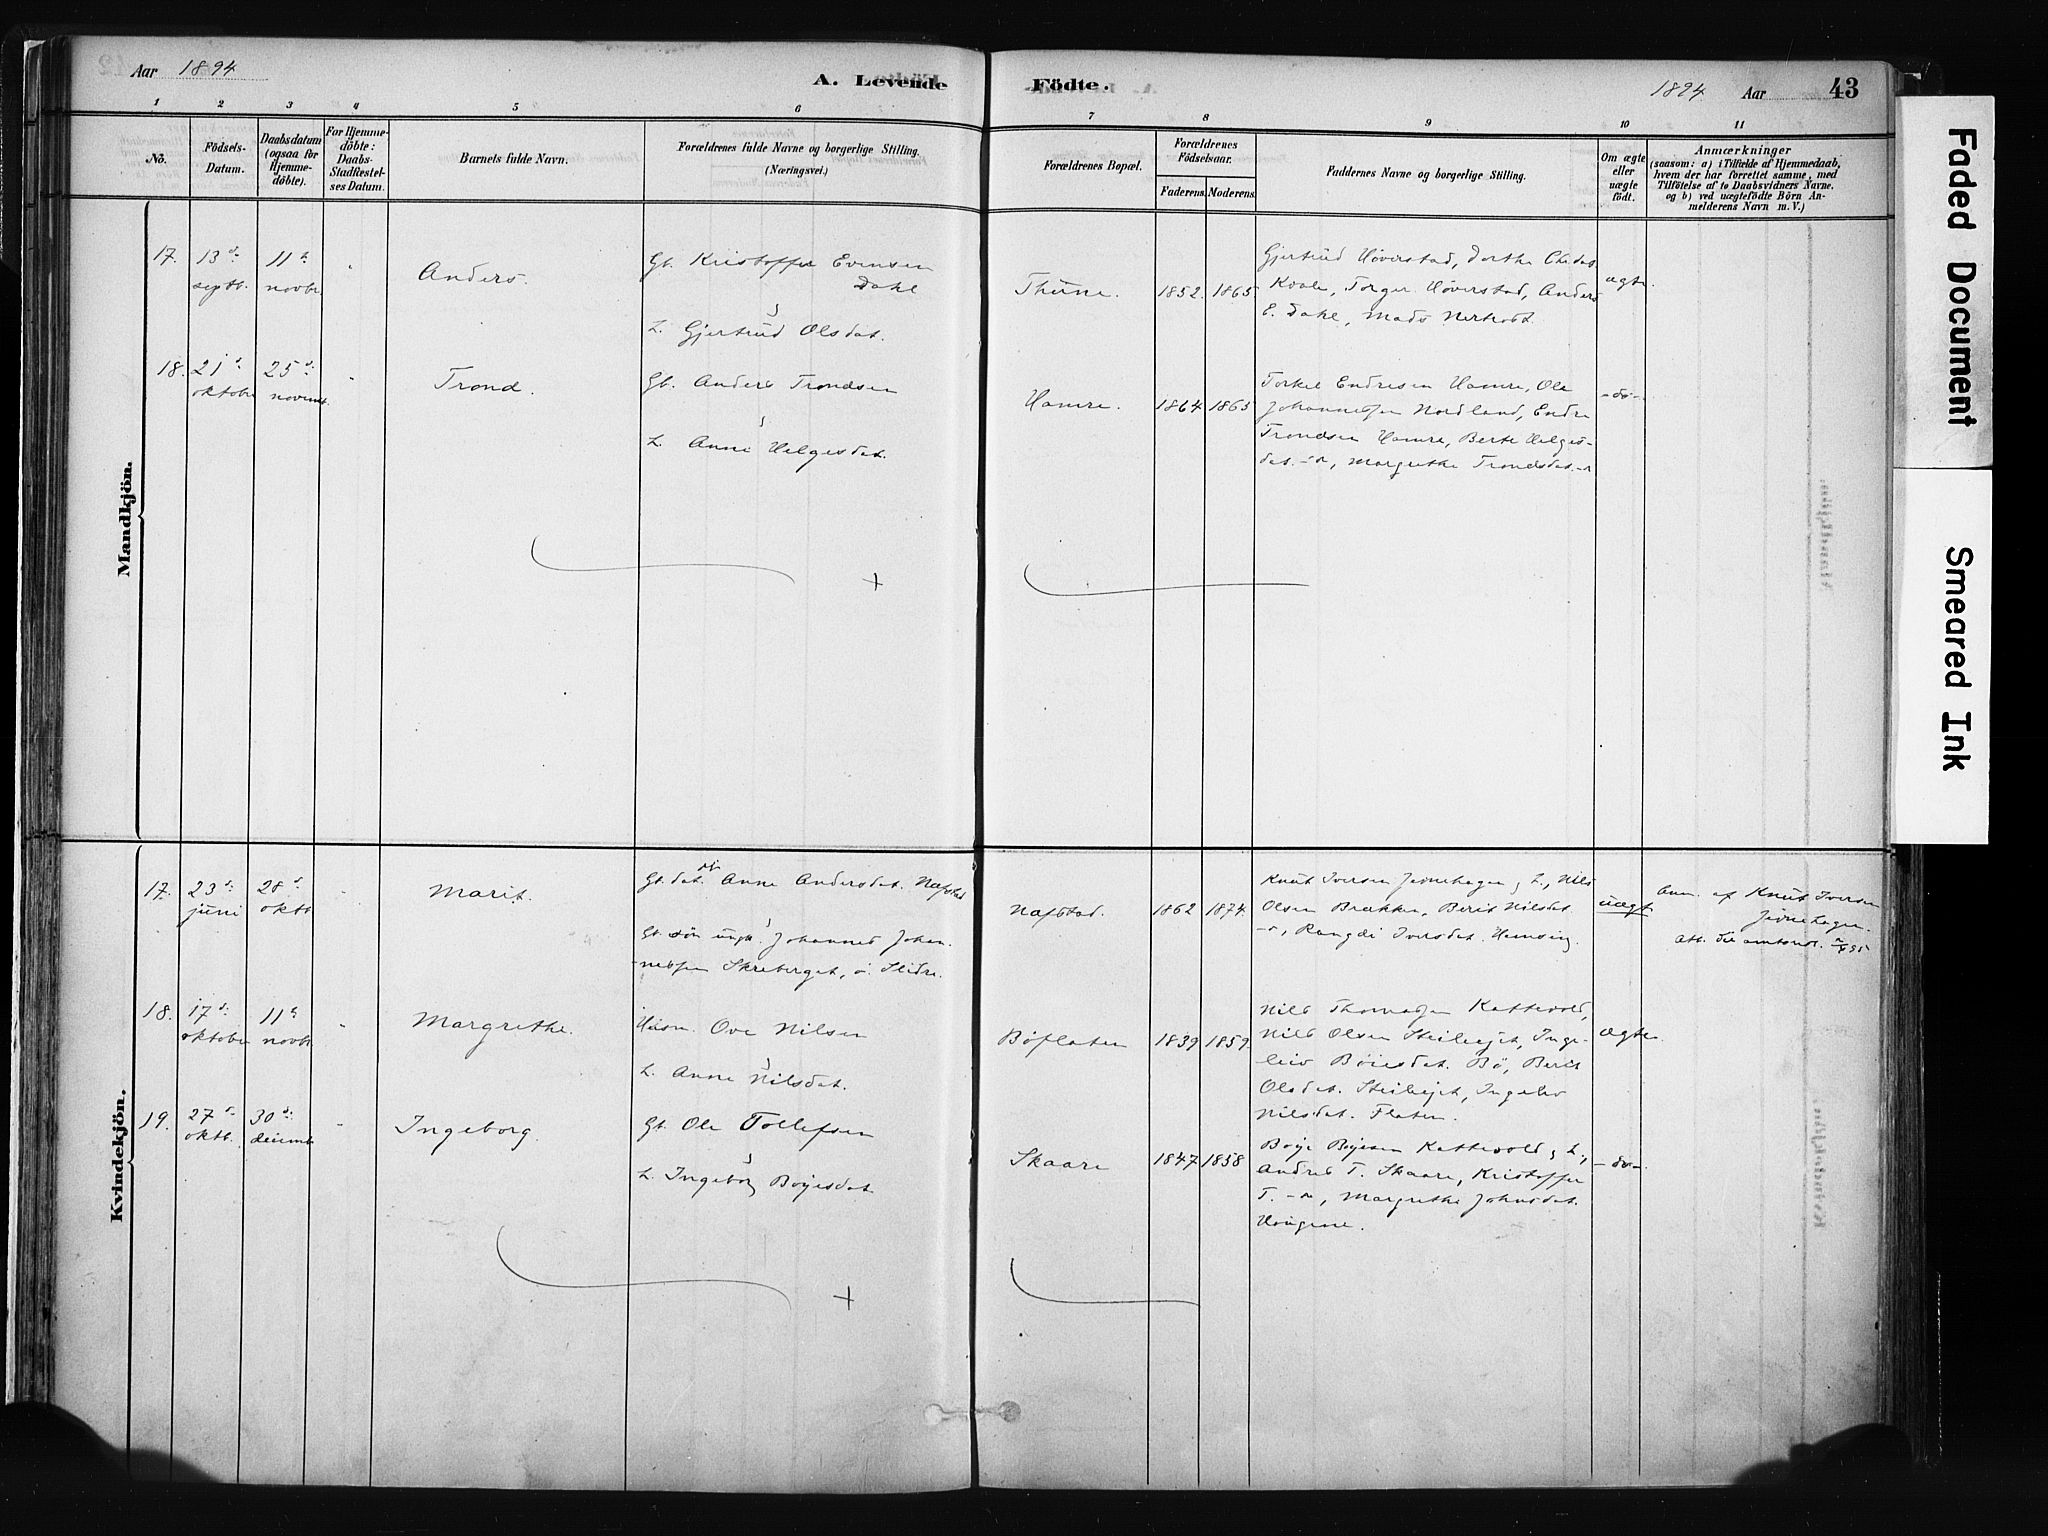 Aar 1894
A. Levende
Födte.
1894 Aar 43
1 2 3 4 5 6 7 8 9 10 11
No.
Födsels-
Datum.
Daabsdatum
(ogsaa for
Hjemme-
döbte).
For Hjemme-
döbte:
Daabs-
Stadfæstel-
ses Datum.
Barnets fulde Navn.
Forældrenes fulde Navne og borgerlige Stilling.
(Næringsvei.)
Forældrenes Bopæl.
Forældrenes
Födselsaar.
Faderens. Moderens.
Faddernes Navne og borgerlige Stilling.
Om ægte
eller
uægte
födt.
Anmærkninger
(saasom: a) i Tilfælde af Hjemmedaab,
hvem der har forrettet samme, med
Tilföielse af to Daabsvidners Navne.
og b) ved uægtefödte Börn An-
melderens Navn m. V.)
Mandkjön.
17. 13d. septb. 11te novbr. " Anders.
Gb. Kristoffer Evensen
Dahl
&
h. Gjertrud Olsdat.
Thune. 1852. 1865.
Gjertrud Höverstad, Dorthe
Kvale, Torger Höverstad, Anders
E. Dahl, Mads
ægte.
18. 21d oktober 25d: novemb. " Trond.
Gb. Anders Trondsen
&
h. Anne Helgesdat.
Hamre. 1864 1865
Torkel Endresen Hamre, Ole
Johannessen Nordland, Endre
Trondsen Hamre, Berte Helges-
dat. -"-, Margrethe Trondsdat. -"-
-do-.
Kvindekjön.
17. 23d: juni 28d. oktb. " Marit.
Gb.dat. Anne Andersdat. Nafstad
&
Gb. sön ungk. Johannes Johan-
nessen Skreberget, ö. Slidre.
Nafstad. 1862 1874.
Knut Iversen Jevnehagen & h., Nils
Olsen Brække, Berit Nilsdat.
-"-, Rangdi Iversdat. Hemsing.
uægte
Anm. af Knut Iversen
Jevnehagen.
Att. til amtmd.
18. 17d: oktober 11te novbr. " Margrethe.
Husm. Ove Nilsen
&
h. Anne Nilsdat.
Böflaten 1839 1859.
Nils Thomassen Kattevold,
Nils Olsen Steilejet, Inge-
leiv Böiesdat. Bö, Berit
Olsdat. Steilejet, Ingelev
Nilsdat. Flaten.
ægte.
19. 27d. oktb. 30d: decemb. " Ingeborg.
Gb. Ole Tollefsen
&
h. Ingeborg Boyesdat.
Skaare 1847 1858
Boye Boyesen Kattevold & h.,
Andres T. Skaare, Kristoffer
T. -"-, Margrethe Johnsdat.
Haugene.
-do-.
Faded Document
Smeared Ink